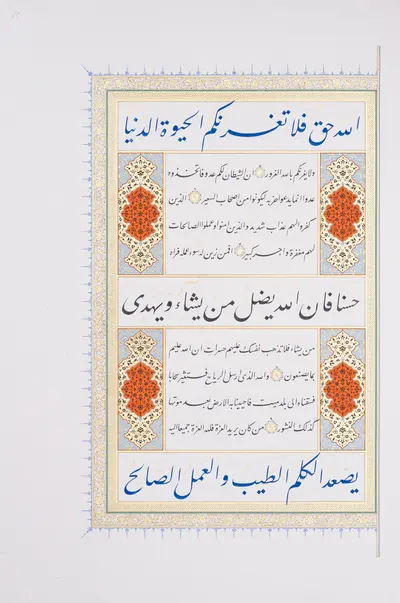 الله حق فلا تغرنكم الحيوة الدنيا
ولا يغرنكم بالله الغرور ان الشيطان لكم عدو فاتخذوه
عدوا انما يدعوا حزبه ليكونوا من اصحاب السعير الذين
كفروا لهم عذاب شديد والذين امنوا وعملوا الصالحات
لهم مغفرة واجر كبير افمن زين له سوء عمله فراه
حسنا فان الله يضل من يشاء ويهدى
من يشاء فلا تذهب نفسك عليهم حسرات ان الله عليم
بما يصنعون والله الذى ارسل الرياح فتثير سحابا
فسقناه الى بلد ميت فاحيينا به الارض بعد موتها
كذلك النشور من كان يريد العزة فلله العزة جميعا اليه
يصعد الكلم الطيب والعمل الصالح